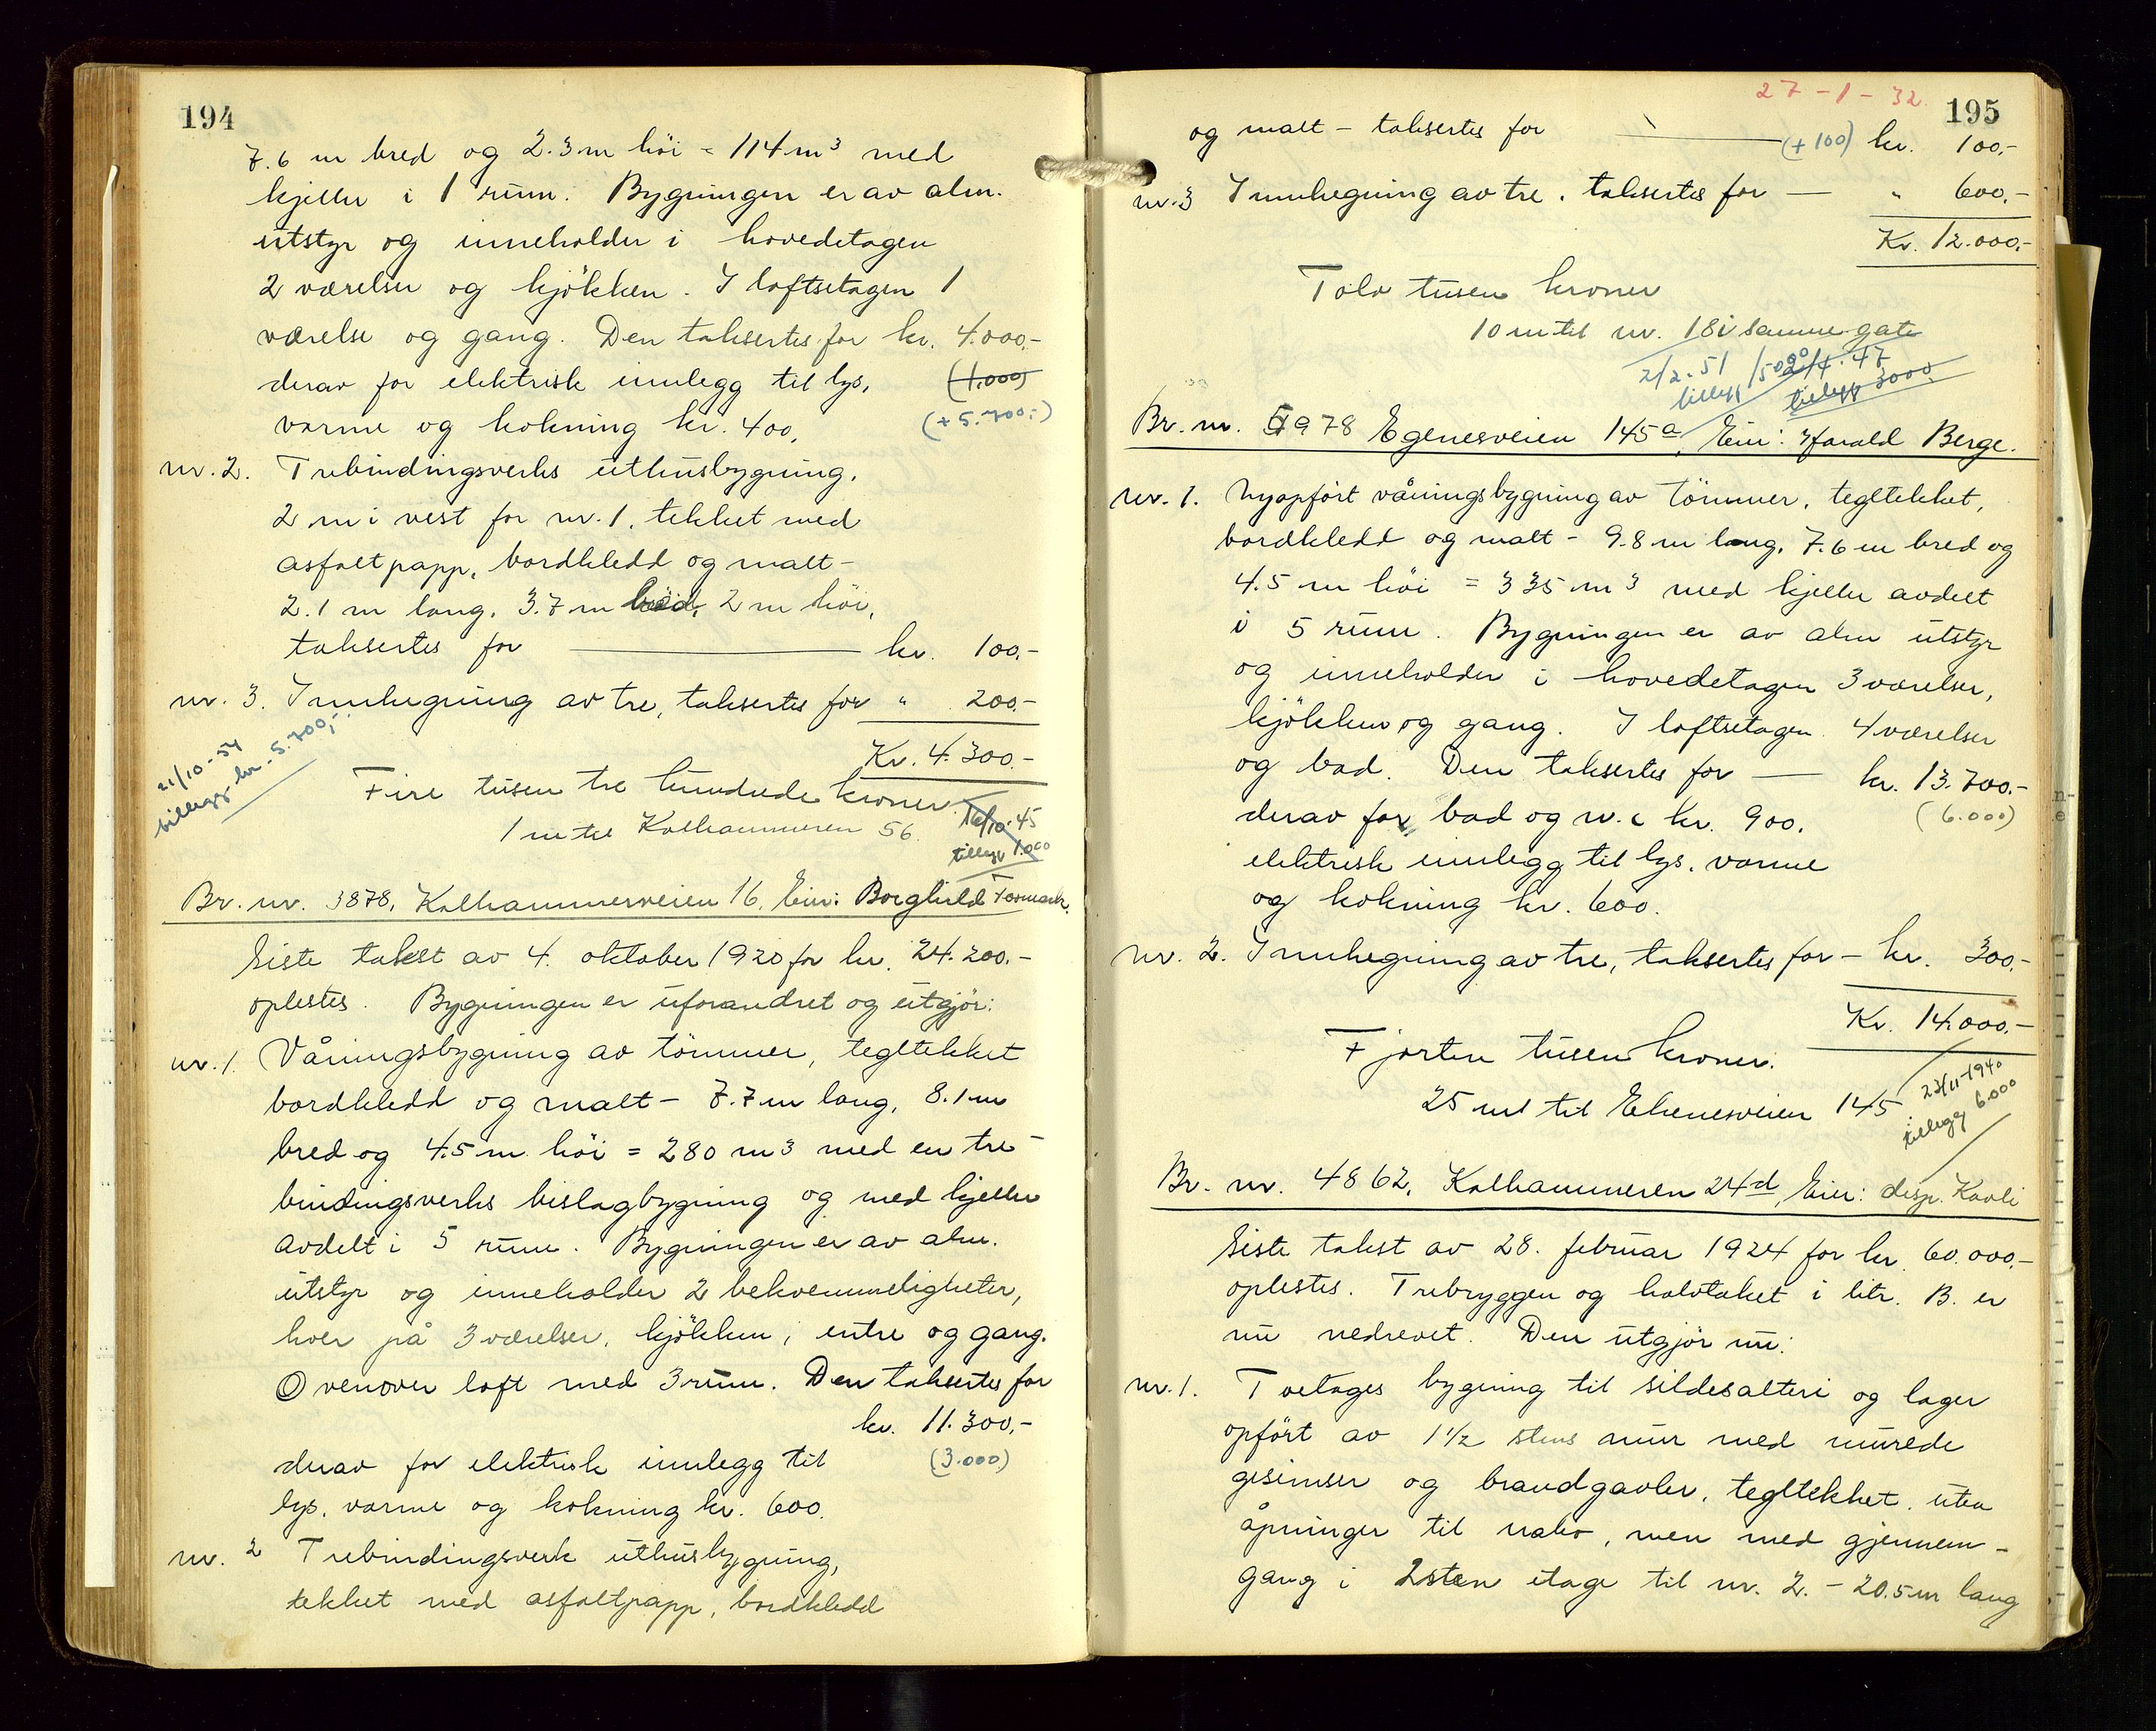 194
7.6 m bred og 2.3 m höi = 114 m³ med
kjeller i 1 rum. Bygningen er av alm.
utstyr og inneholder i hovedetagen
2 værelser og kjökken. I loftsetagen 1
værelse og gang. Den taksertes for kr. 4.000.-
derav for elektrisk innlegg til lys, (1.000)
varme og kokning kr. 400, (+ 5.700.-)
nr. 2. Trebindingsverks uthusbygning,
2 m i vest for nr. 1, tekket med
asfaltpapp, bordkledd og malt -
2.1 m lang, 3.7 m bred, 2 m höi,
taksertes for kr. 100.-
nr. 3. Innhegning av tre, taksertes for " 200.-
Kr. 4.300.-
21/10-54
tillegg kr. 5.700,-
Fire tusen tre hundrede kroner
1 m til Kalhammeren 56. 16/10-45
tillegg 1.000
Br. nr. 3878, Kalhammerveien 16, Eier: Borghild Tormark.
Siste takst av 4. oktober 1920 for kr. 24.200.-
oplestes. Bygningen er uforandret og utgjör:
nr. 1. Våningsbygning av tömmer, tegltekket
bordkledd og malt - 7.7 m lang, 8.1 m
bred og 4.5 m höi = 280 m³ med en tre-
bindingsverks bislagbygning og med kjeller
avdelt i 5 rum. Bygningen er av alm.
utstyr og inneholder 2 bekvemmeligheter,
hver på 3 værelser, kjökken, entre og gang.
Ovenover loft med 3 rum. Den taksertes for
kr. 11.300,-
derav for elektrisk innlegg til (3.000)
lys, varme og kokning kr. 600.
nr. 2 Trebindingsverk uthusbygning,
tekket med asfaltpapp, bordkledd
27-1-32
195
og malt - taksertes for (+ 100) kr. 100,-
nr. 3 Innhegning av tre, taksertes for " 600,-
Kr. 12.000,-
Tolv tusen kroner
10 m til nr. 18 i samme gate
2/2-51 /50 2/4.47
tillegg tillegg 3000
Br. nr. 978 Egenesveien 145a, Eier: Harald Berge.
nr. 1. Nyopfört våningsbygning av tömmer, tegltekket,
bordkledd og malt - 9.8 m lang, 7.6 m bred og
4.5 m höi = 335 m³ med kjeller avdelt
i 5 rum. Bygningen er av alm utstyr
og inneholder i hovedetagen 3 værelser,
kjökken og gang. I loftsetagen 4 værelser
og bad. Den taksertes for kr. 13.700.-
derav for bad og w.c kr. 900. (6.000)
elektrisk innlegg til lys, varme
og kokning kr. 600.
nr. 2. Innhegning av tre, taksertes for - kr. 300.-
Kr. 14.000.-
Fjorten tusen kroner.
25 m til Ekenesveien 145 23/11-1940
tillegg 6.000
Br. nr. 4862, Kalhammeren 24d, Eier: disp. Kavli
Siste takst av 28. februar 1924 for kr 60.000.-
oplestes. Trebryggen og halvtaket i litr. B. er
nu nedrevet. Den utgjör nu:
nr. 1. Toetages bygning til sildesalteri og lager
opfört av 1½ stens mur med murede
gesimser og brandgavler, tegltekket, uten
åpninger til nabo, men med gjennem-
gang i 2sten etage til nr. 2. - 20.5 m lang